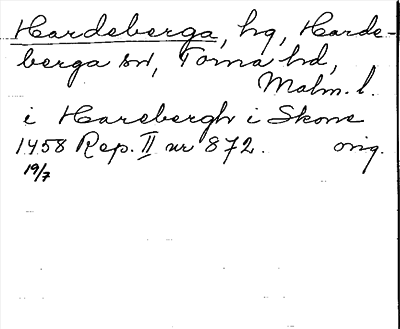 Hardeberga, hg, Harde-
berga sn, Torna hd,
Malm. l.
i Harebergh i Skone
1458 Rep. II nr 872. orig.
19/7